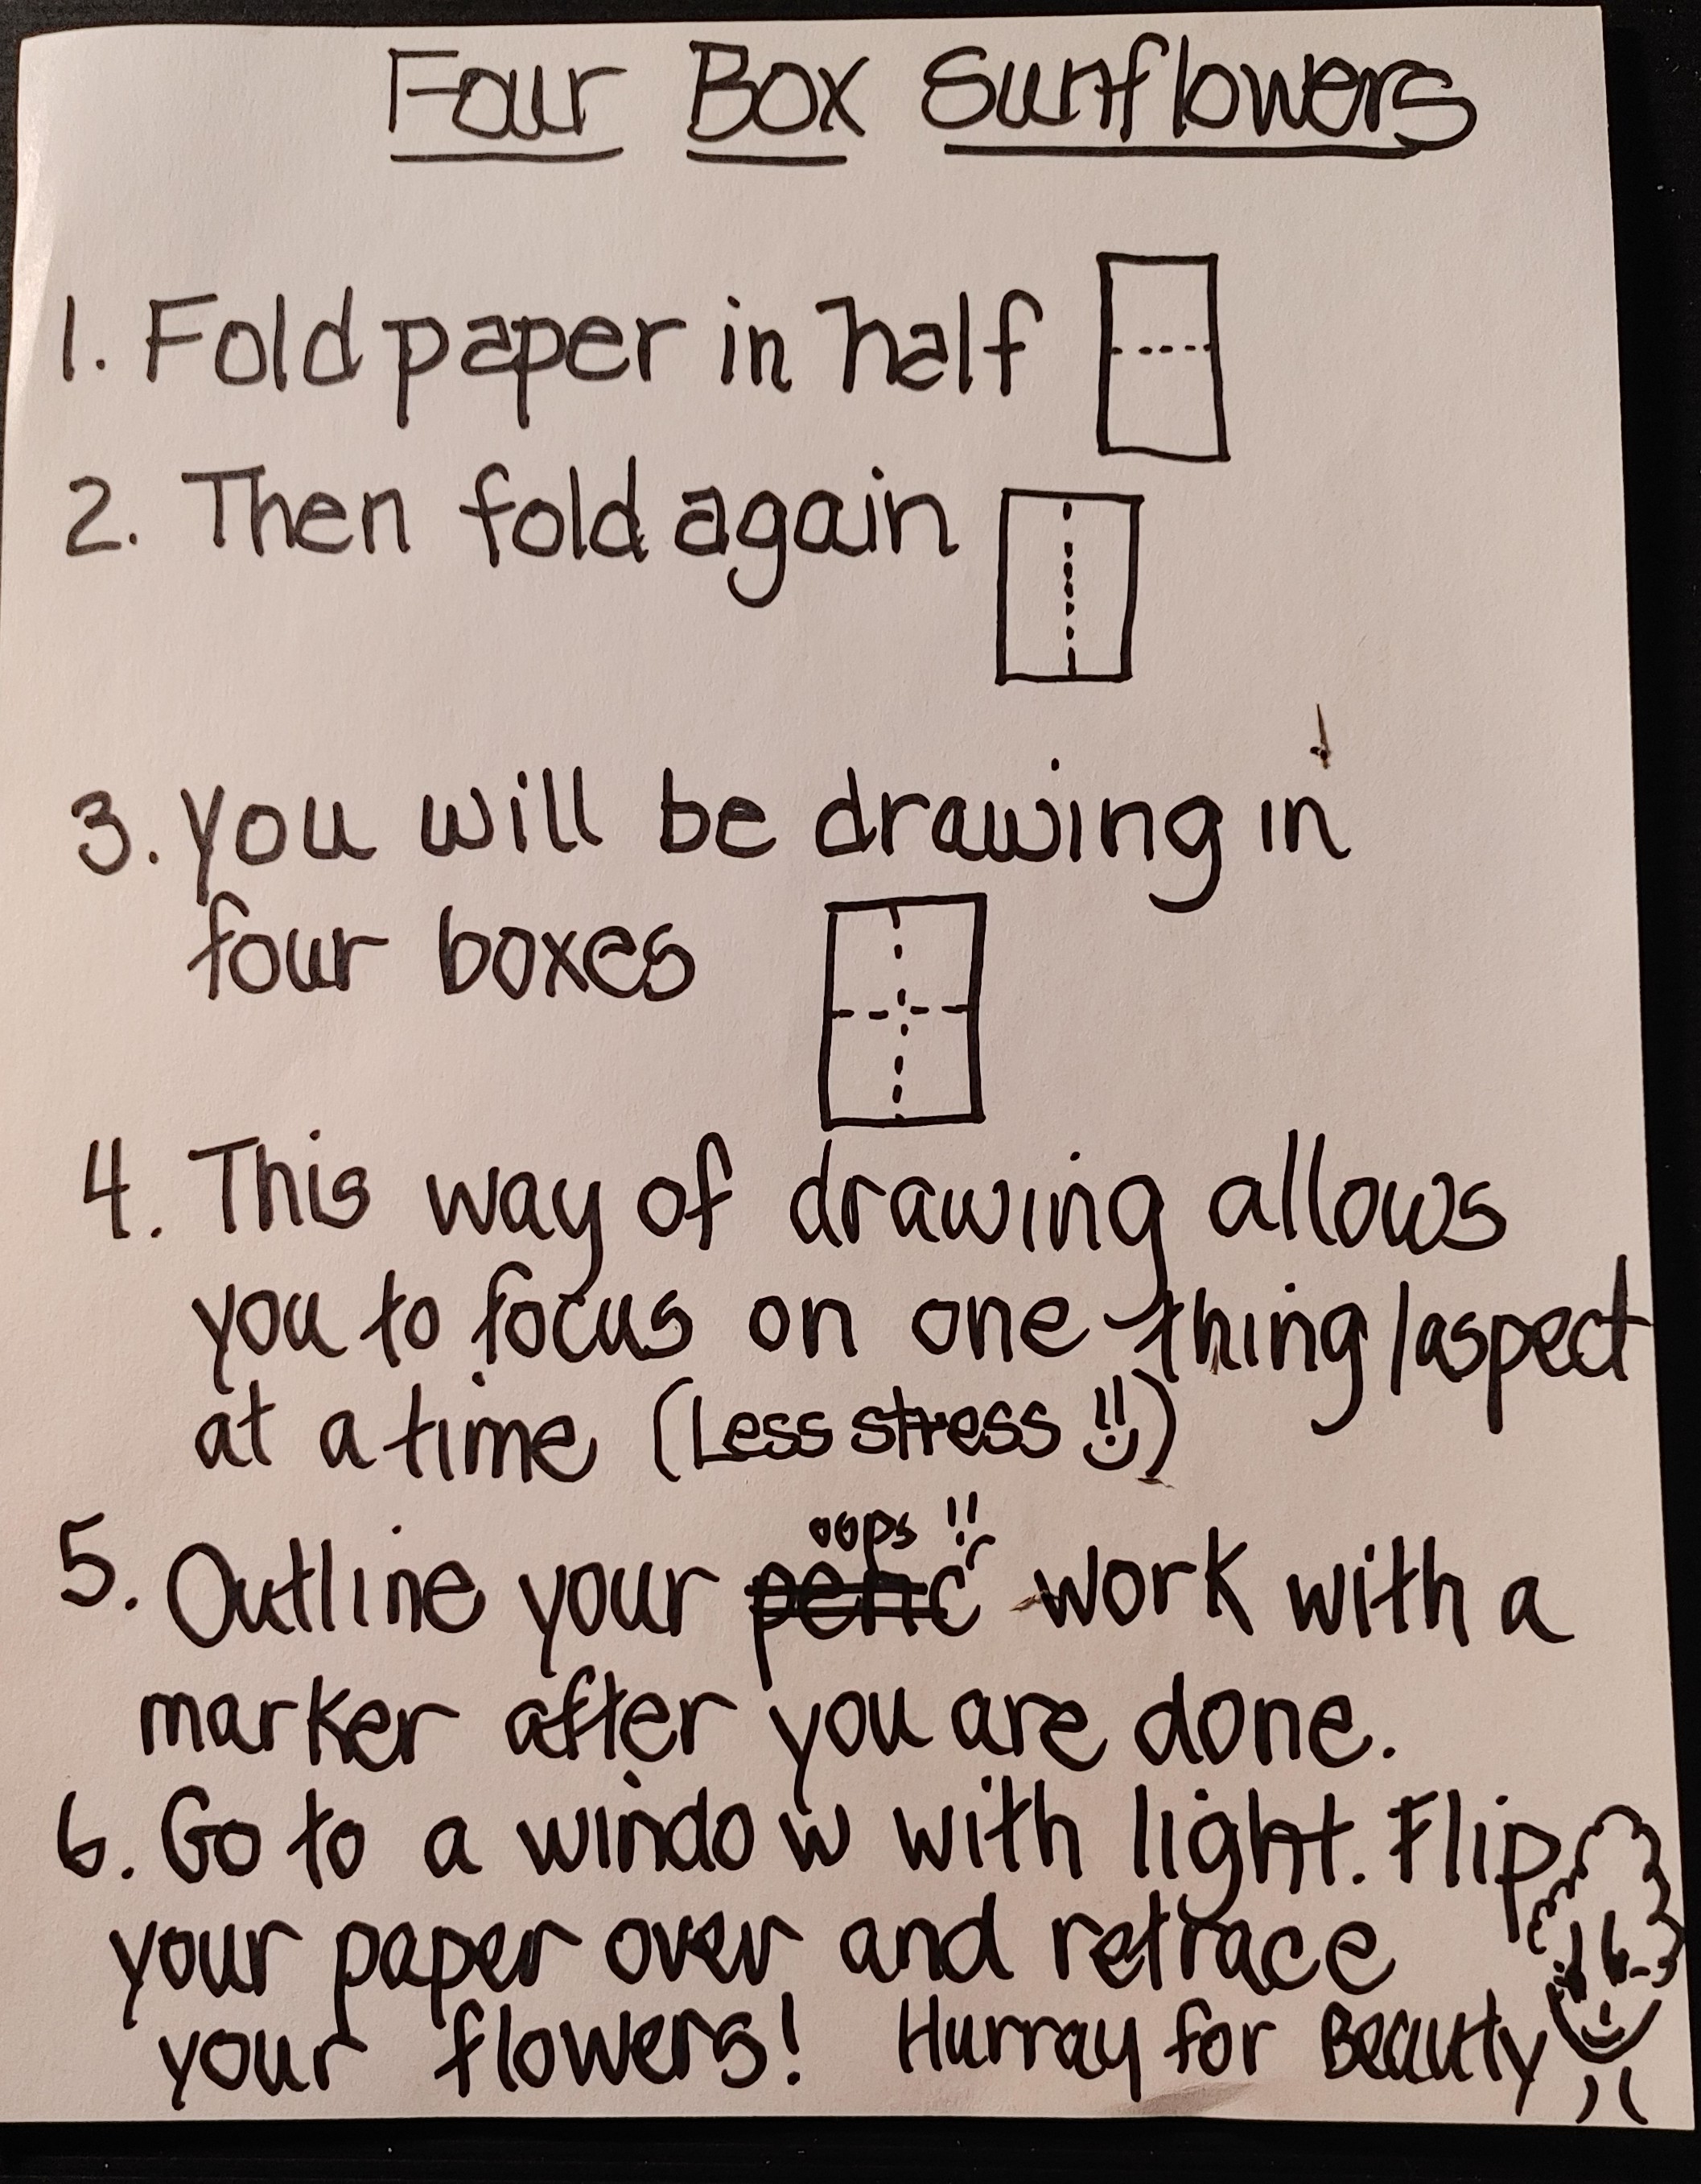 Four Box Sunflowers
1. Fold paper in half
2. Then fold again
3. you will be drawing in
four boxes
4. This way of drawing allows
you to focus on one thing/aspect
at a time (Less stress !!)
oops !!
5. Outline your penc work with a
marker after you are done.
6. Go to a window with light. Flip
your paper over and retrace
your flowers! Hurray for Beauty